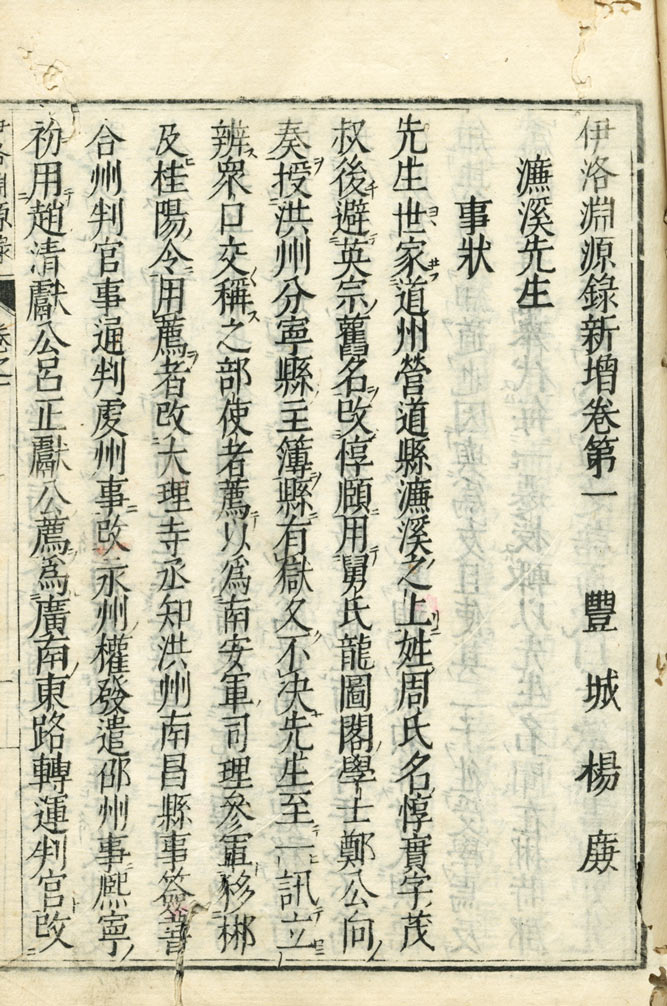 伊洛淵源錄新增卷第一　豐城楊廉
濂溪先生
事狀
先生世家道州營道縣濂溪之上姓周氏名惇實字茂
叔後避英宗舊名改惇頤用舅氏龍圖閣學士鄭公向
奏授洪州分寧縣主簿縣有獄久不決先生至一訊立
辨眾口交稱之部使者薦以爲南安軍司理參軍移郴
及桂陽令用薦者改大理寺丞知洪州南昌縣事簽書
合州判官事通判虔州事改永州權發遣邵州事熙寧
初用趙清獻公呂正獻公薦爲廣南東路轉運判官改
伊洛淵源錄　卷之一